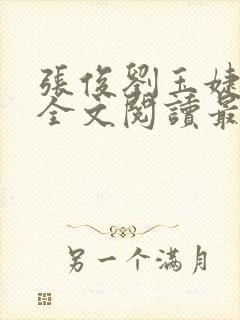 張俊劉玉婕
全文閱讀最
另一个满月